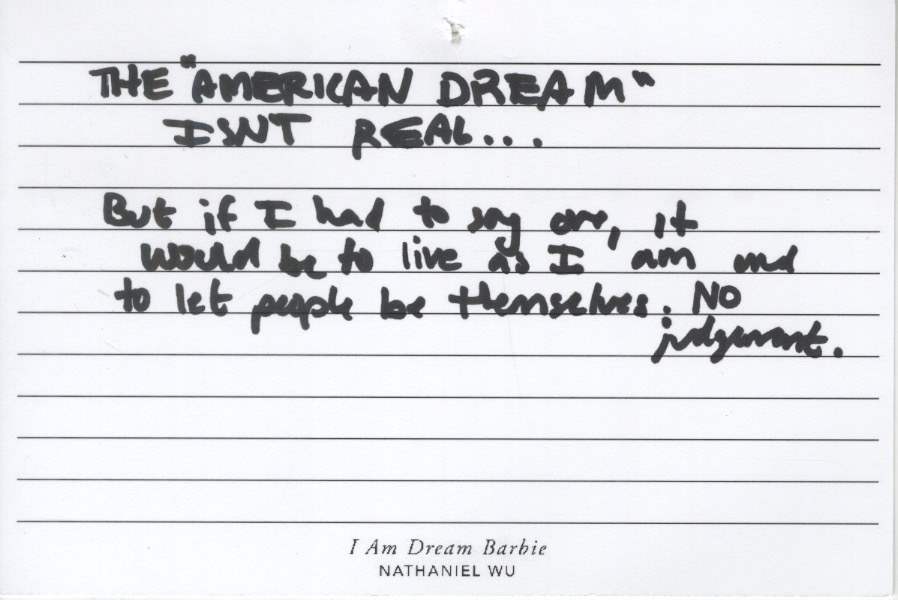 THE "AMERICAN DREAM"
ISNT REAL...
But if I had to say one, it
would be to live as I am and
to let people be themselves. NO
judgement.
I Am Dream Barbie
NATHANIEL WU